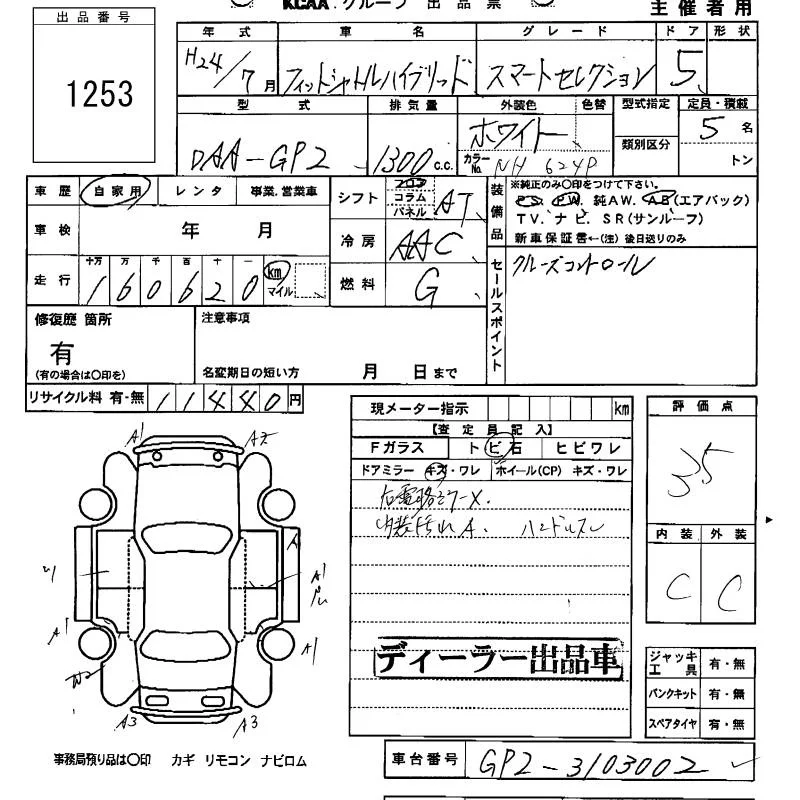 KCAA グループ 出品票
主催者用
出品番号
1253
年式 車名 グレード ドア 形状
H24/7月 フィットシャトルハイブリッド スマートセレクション 5
型式 排気量 外装色 色替 型式指定 定員・積載
DAA-GP2 1300c.c. ホワイト 5名
カラーNo. NH 624P 類別区分 トン
車歴 自家用 レンタ 事業.営業車
車検 年 月
走行 十万 万 千 百 十 一
160620 km マイル
シフト フロア コラム パネル AT
冷房 AAC
燃料 G
装備品 ※純正のみ〇印をつけて下さい。
PS. PW. 純AW. AB(エアバック)
TV. ナビ. SR(サンルーフ)
新車保証書←(注)後日送りのみ
セールスポイント
クルーズコントロール
修復歴 箇所
有
(有の場合は〇印を)
注意事項
名変期日の短い方 月 日まで
リサイクル料 有・無 11440円
現メーター指示 km
【査定員記入】
Fガラス トビ石 ヒビワレ
ドアミラー キズ・ワレ ホイール(CP) キズ・ワレ
内装汚れA. ハンドルスレ
ディーラー出品車
評価点
35
内装 外装
C C
A1 A2
A
A1
A1 A1
A3 A3
ジャッキ工具 有・無
パンクキット 有・無
スペアタイヤ 有・無
事務局預り品は〇印 カギ リモコン ナビロム
車台番号 GP2-3103002